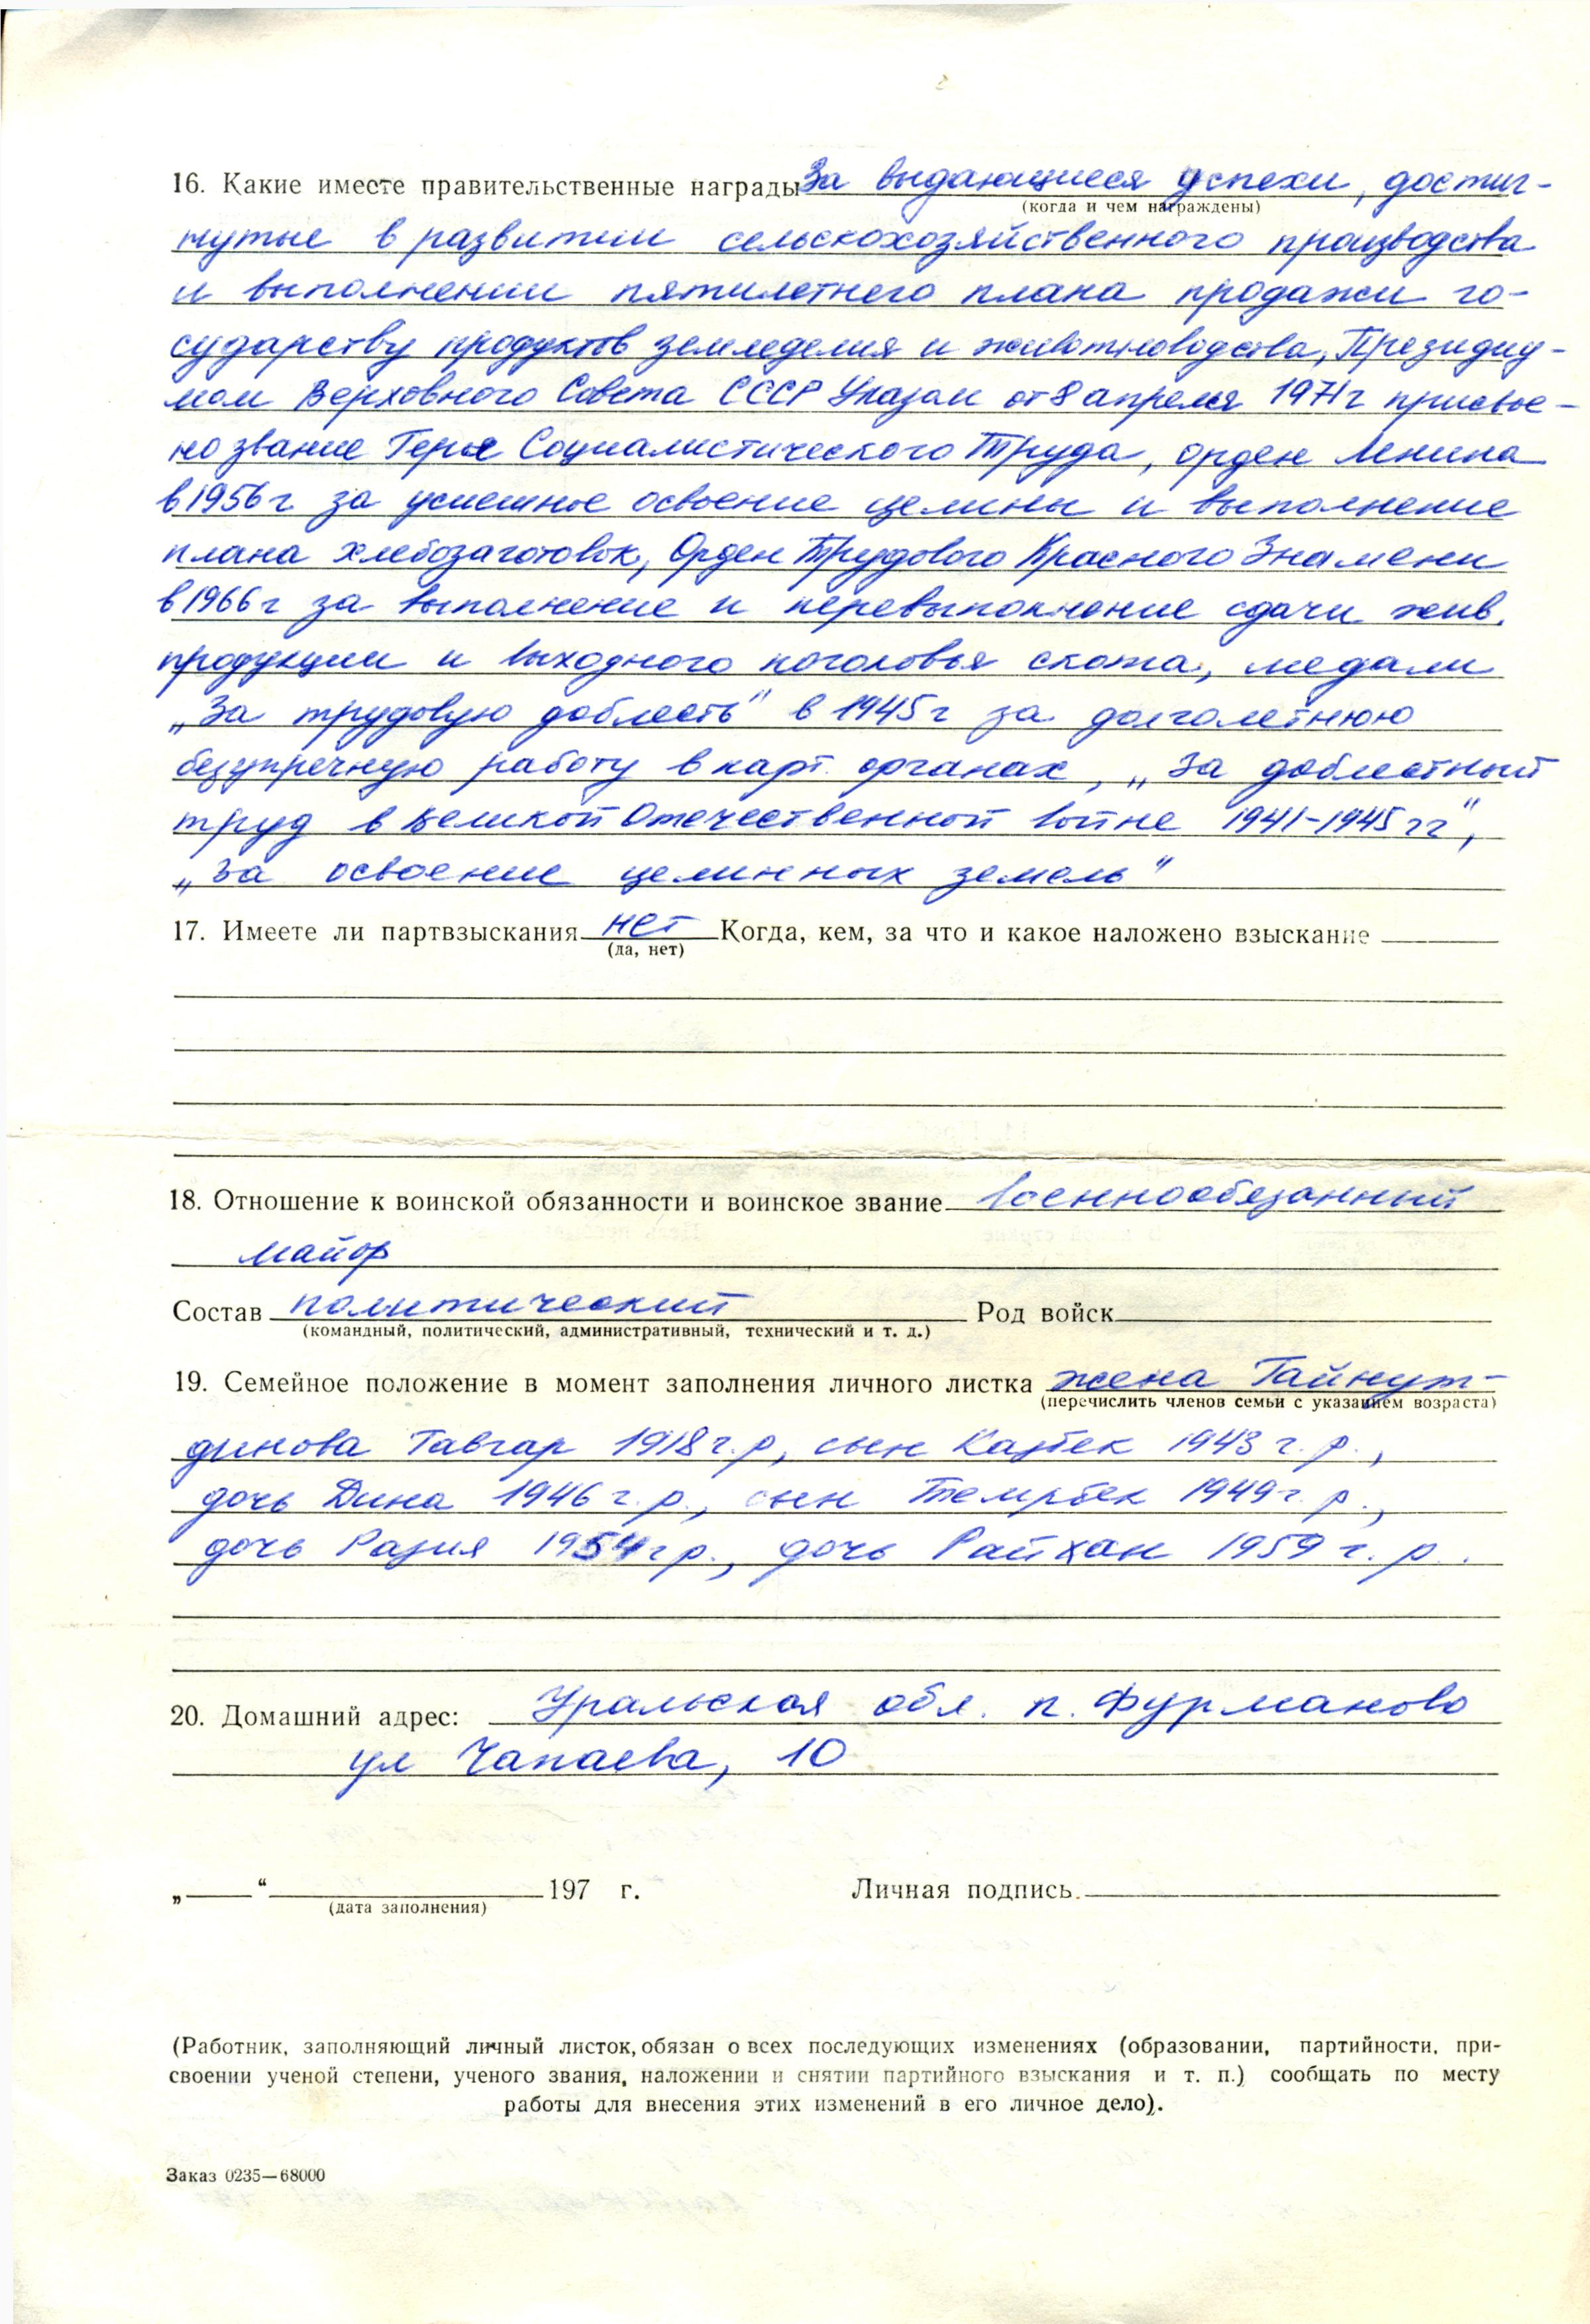 16. Какие имеете правительственные награды За выдающиеся успехи, достиг-
(когда и чем награждены)
нутые в развитии сельскохозяйственного производства
и выполнении пятилетнего плана продажи го-
сударству продуктов земледелия и животноводства, Президиу-
мом Верховного Совета СССР Указом от 8 апреля 1971г присвое-
но звание Героя Социалистического Труда, орден Ленина
в 1956г за успешное освоение целины и выполнение
плана хлебозаготовок, Орден Трудового Красного Знамени
в 1966г за выполнение и перевыполнение сдачи жив.
продукции и выходного поголовья скота, медали
„За трудовую доблесть" в 1945г за долголетнюю
безупречную работу в карт. органах, „За доблестный
труд в Великой Отечественной войне 1941-1945 гг",
„За освоение целинных земель"
17. Имеете ли партвзыскания нет Когда, кем, за что и какое наложено взыскание
(да, нет)
18. Отношение к воинской обязанности и воинское звание военнообязанный
майор
Состав политический Род войск
(командный, политический, административный, технический и т. д.)
19. Семейное положение в момент заполнения личного листка жена Гайнут-
(перечислить членов семьи с указанием возраста)
динова Тавгар 1918г.р, сын Казбек 1943 г. р.,
дочь Дина 1946 г. р., сын Темрбек 1949г. р.,
дочь Разия 1954 г р., дочь Райхан 1959 г. р.
20. Домашний адрес: Уральская обл. п. Фурманово
ул Чапаева, 10
„ “ 197 г. Личная подпись.
(дата заполнения)
(Работник, заполняющий личный листок, обязан о всех последующих изменениях (образовании, партийности, при-
своении ученой степени, ученого звания, наложении и снятии партийного взыскания и т. п.) сообщать по месту
работы для внесения этих изменений в его личное дело).
Заказ 0235—68000